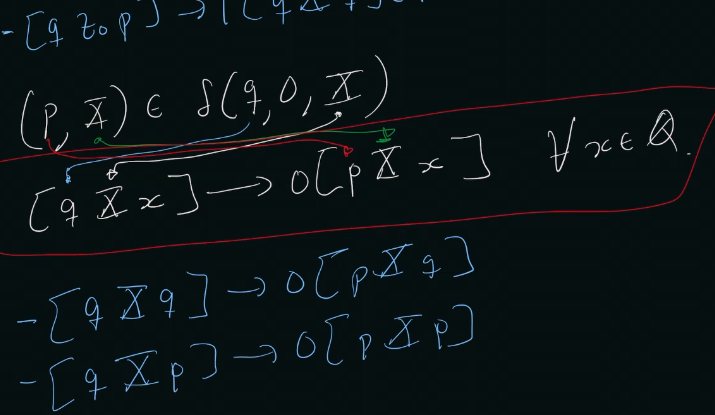 - [q z₀ p] →
(p, X) ∈ δ(q, 0, X)
[q X x] → 0[p X x] ∀ x ∈ Q.
- [q X q] → 0[p X q]
- [q X p] → 0[p X p]